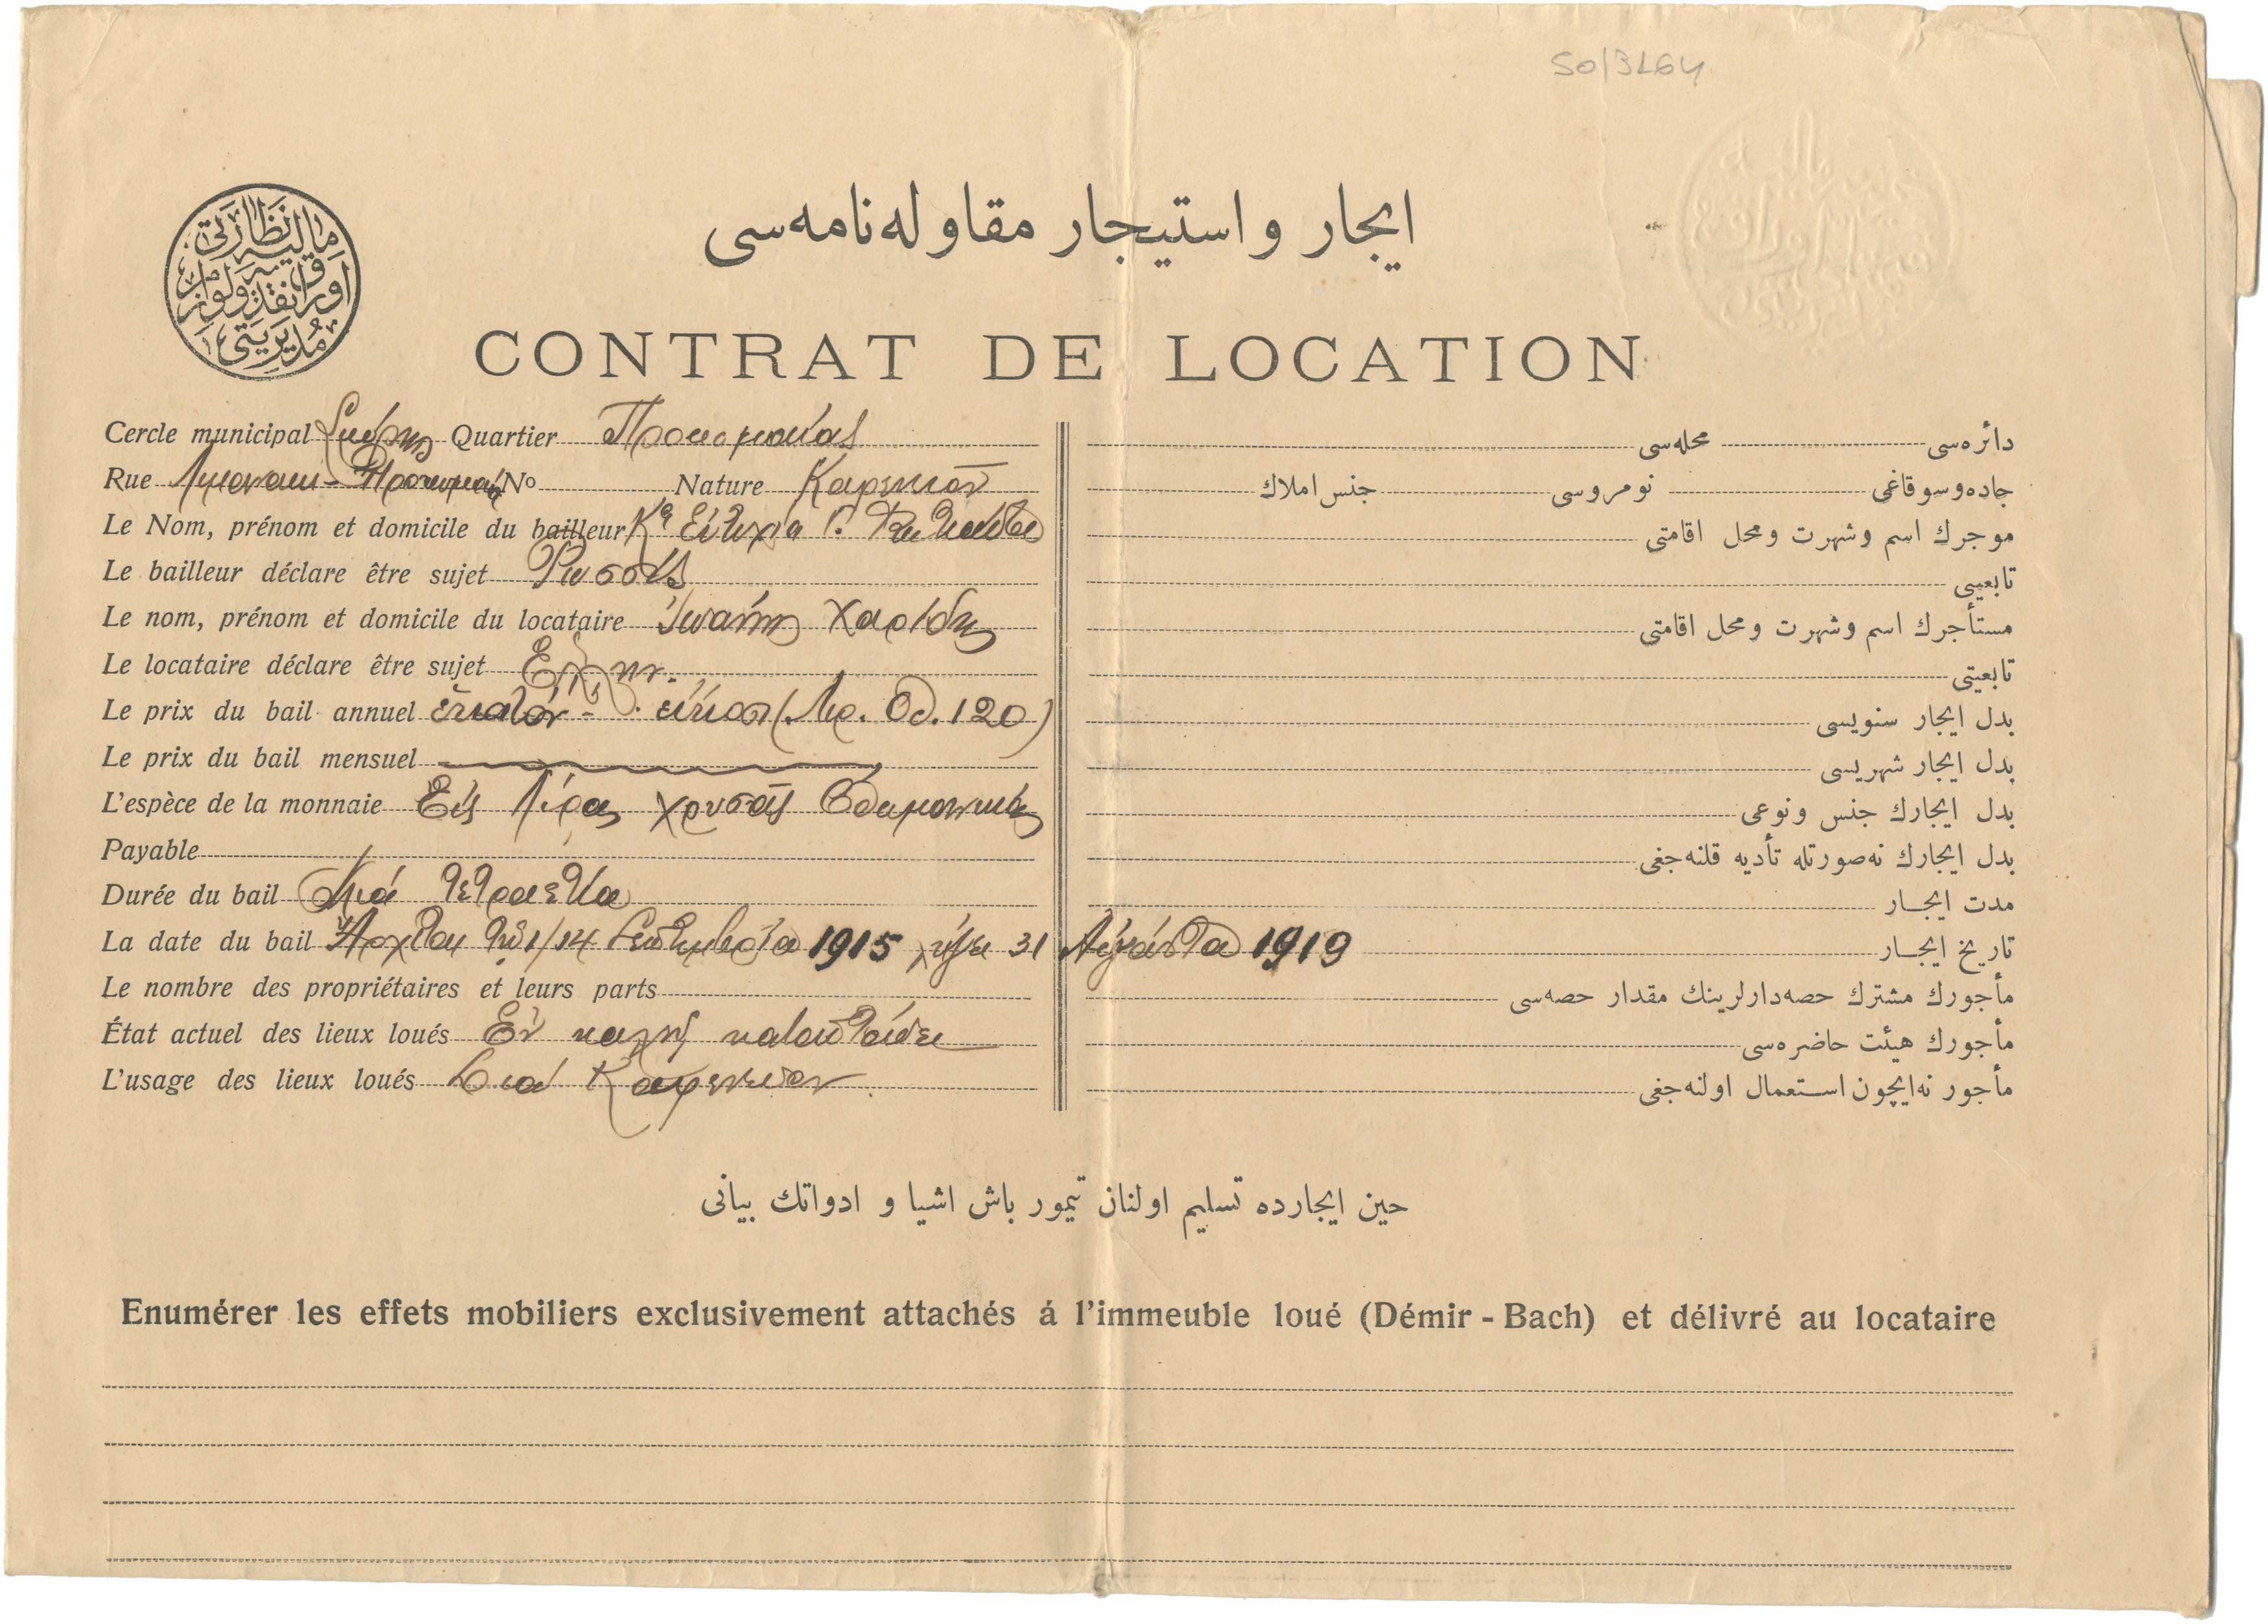 SO/3164
مالیه نظارتی اوراق نقدیه ولوازم مدیریتی
ایجار و استیجار مقاوله‌نامه‌سی
CONTRAT DE LOCATION
Cercle municipal Σμύρνης Quartier Προκυμαίας
دائره‌سی محله‌سی
Rue Λιμανάκι - Προκυμαία No Nature Καφενεῖον
جاده‌وسوقاغی نومروسی جنس املاك
Le Nom, prénom et domicile du bailleur Κα Εὐτυχία Γ.
موجرك اسم وشهرت ومحل اقامتی
Le bailleur déclare être sujet Ρωσσίς
تابعیتی
Le nom, prénom et domicile du locataire Ἰωάννης
مستأجرك اسم وشهرت ومحل اقامتی
Le locataire déclare être sujet Ἕλλην.
تابعیتی
Le prix du bail annuel ἑκατὸν - εἴκοσι (Λιρ. Ὀθ. 120)
بدل ایجار سنویسی
Le prix du bail mensuel
بدل ایجار شهریسی
L'espèce de la monnaie Εἰς λίρας χρυσᾶς Ὀθωμανικάς
بدل ایجارك جنس ونوعی
Payable
بدل ایجارك نه‌صورتله تأدیه قلنه‌جغی
Durée du bail Μιά τετραετία
مدت ایجار
La date du bail Ἄρχεται τῇ 1/14 Σεπτεμβρίου 1915 λήγει 31 Αὐγούστου 1919
تاریخ ایجار
Le nombre des propriétaires et leurs parts
مأجورك مشترك حصه‌دارلرینك مقدار حصه‌سی
État actuel des lieux loués Ἐν καλῇ καταστάσει
مأجورك هیئت حاضره‌سی
L'usage des lieux loués Διά Καφενεῖον
مأجور نه‌ایچون استعمال اولنه‌جغی
حین ایجارده تسلیم اولنان تیمور باش اشیا و ادواتك بیانی
Enumérer les effets mobiliers exclusivement attachés á l'immeuble loué (Démir - Bach) et délivré au locataire